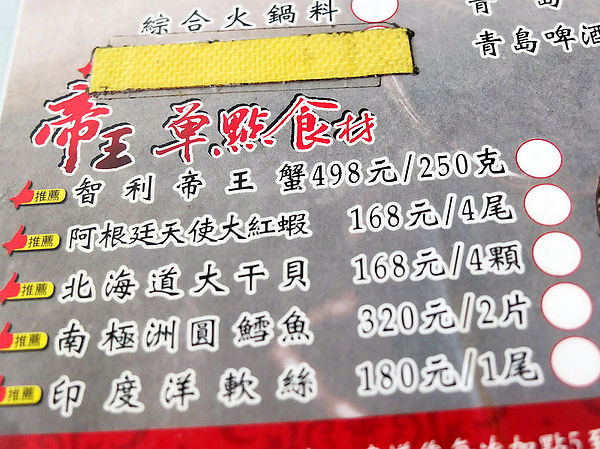 綜合火鍋料
青島
青島啤酒
帝王 單點食材
推薦 智利帝王蟹 498元/250克
推薦 阿根廷天使大紅蝦 168元/4尾
推薦 北海道大干貝 168元/4顆
推薦 南極洲圓鱈魚 320元/2片
推薦 印度洋軟絲 180元/1尾
加點5